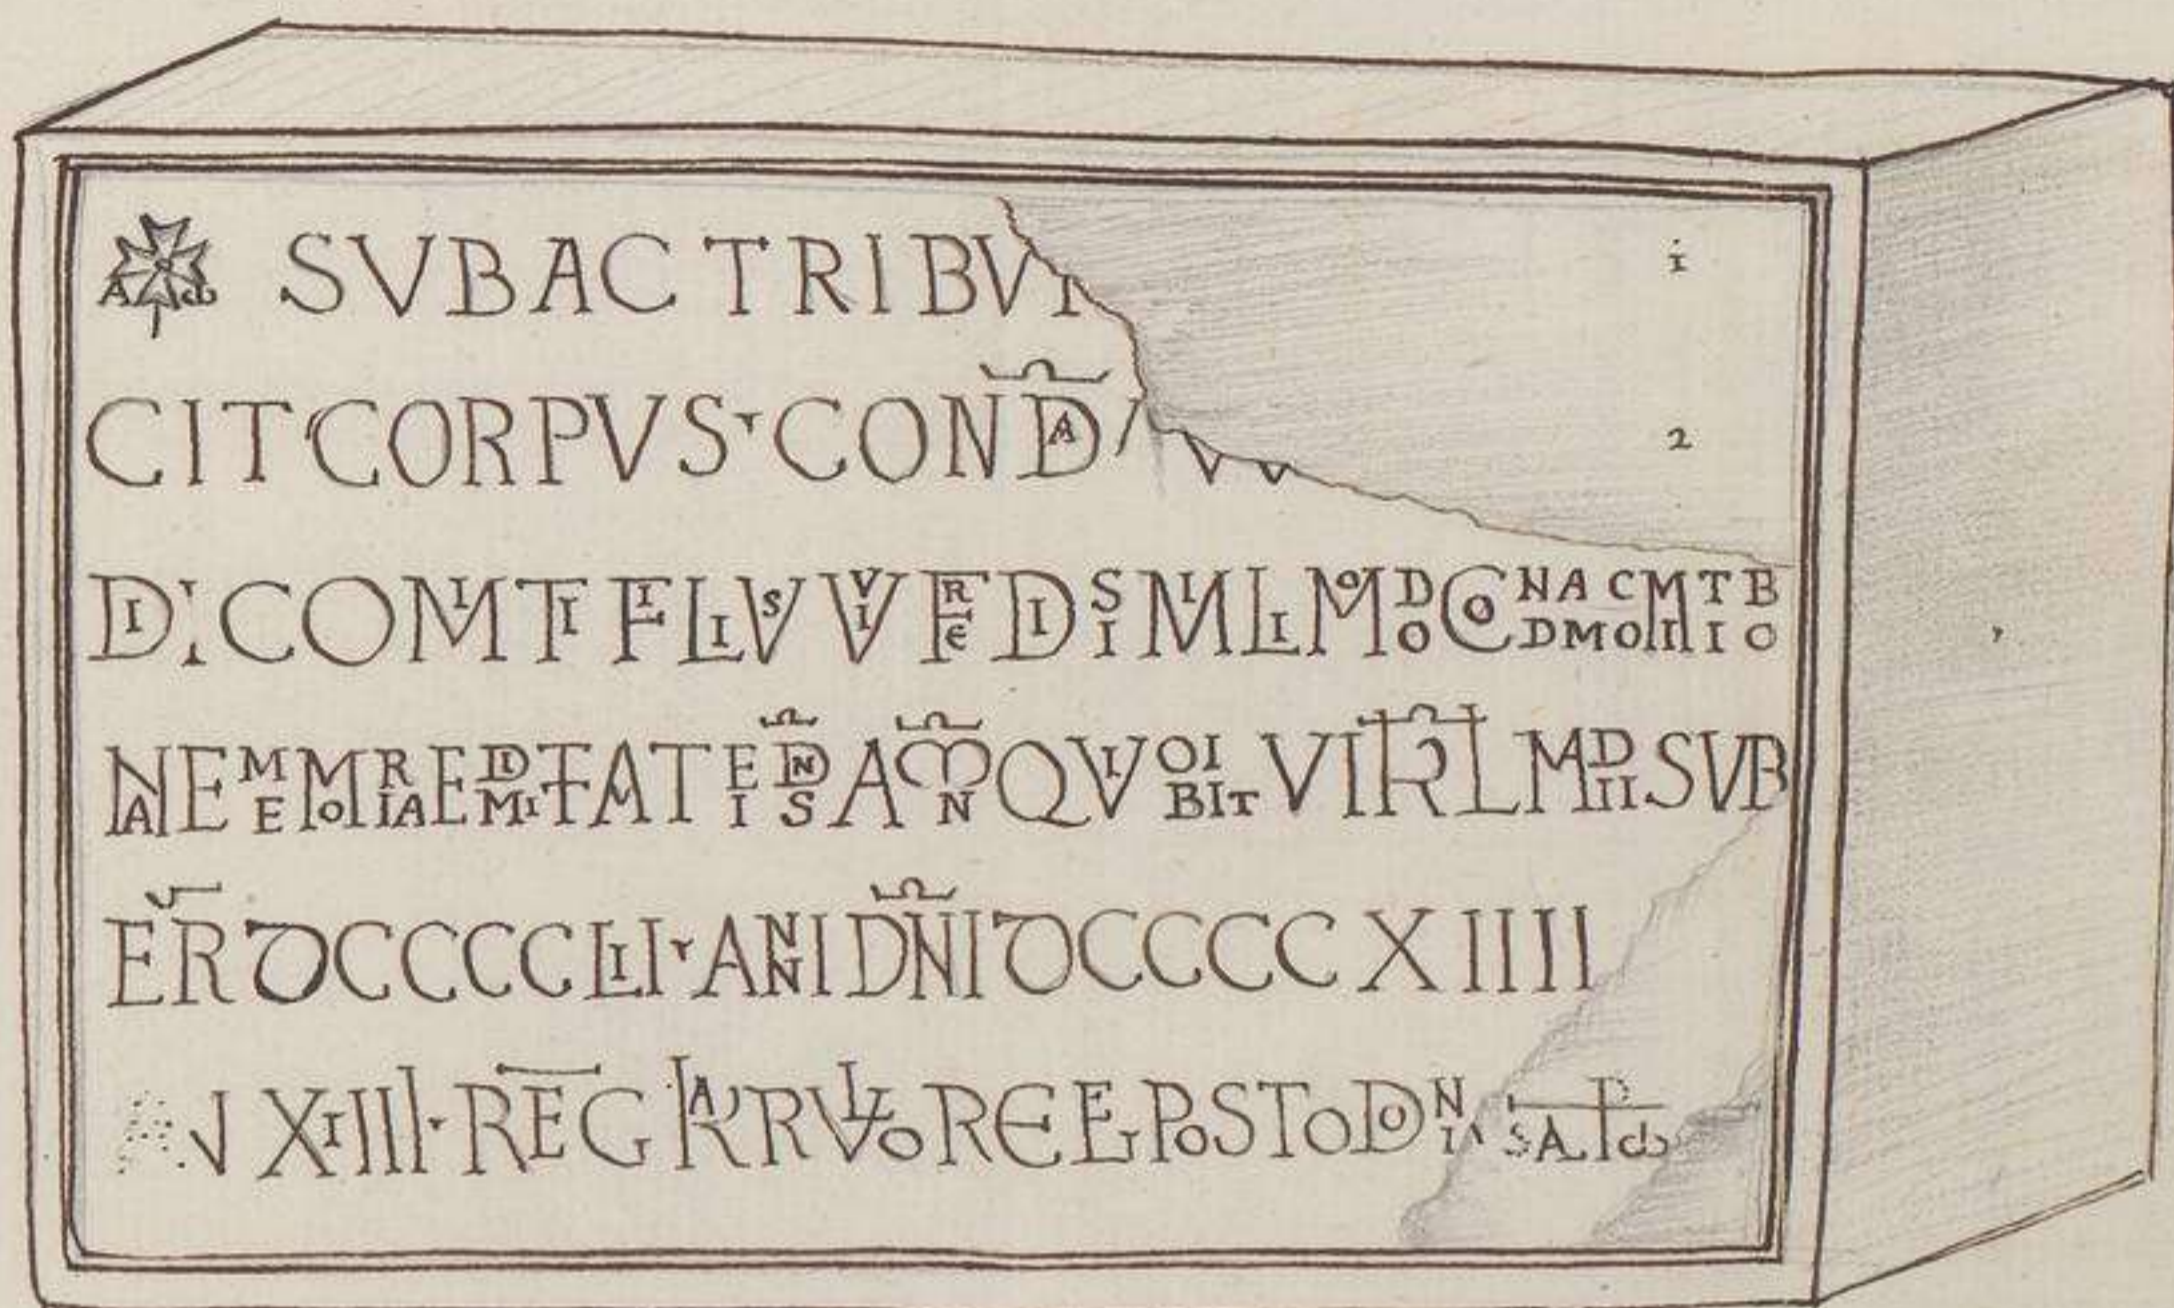 SVBAC TRIBV
CIT CORPVS CONDA
DIDI COMITI FILI SVI VIFREDI SIMILI MODO CONDAM COMITI BO
NAE MEMORIAE DIMITTAT EI DNS AMN QVI OBIIT VI KL MADII SVB
ERA DCCCCLII ANNI DNI DCCCCXIIII
AN XIIII REG KARVLO REGE POST ODONI